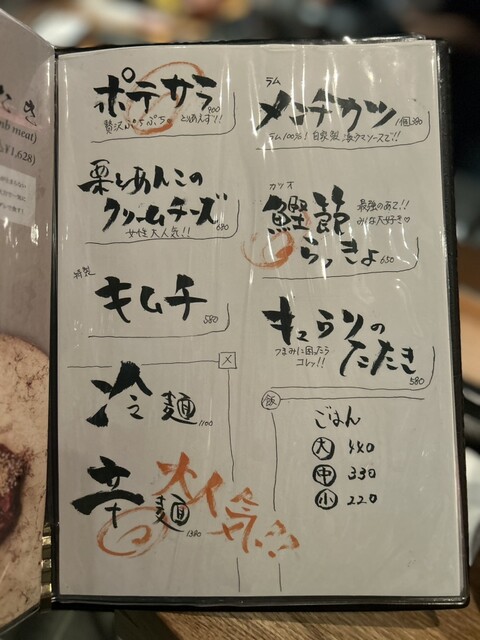 ポテサラ
900
贅沢ぷちぷち とりあえず!!
ラム
メンチカツ
1個 380
ラム100%! 自家製
栗とあんこの
クリームチーズ
女性大人気!!
680
カツオ
鰹節
らっきょ
650
最強のあて!!
みんな大好き♡
特製
キムチ
580
キュウリの
たたき
つまみに困ったら
コレッ!!
580
〆
冷麺
1100
辛麺
大人気!!
飯
ごはん
大 440
中 330
小 220
たき
mb meat)
¥1,628)